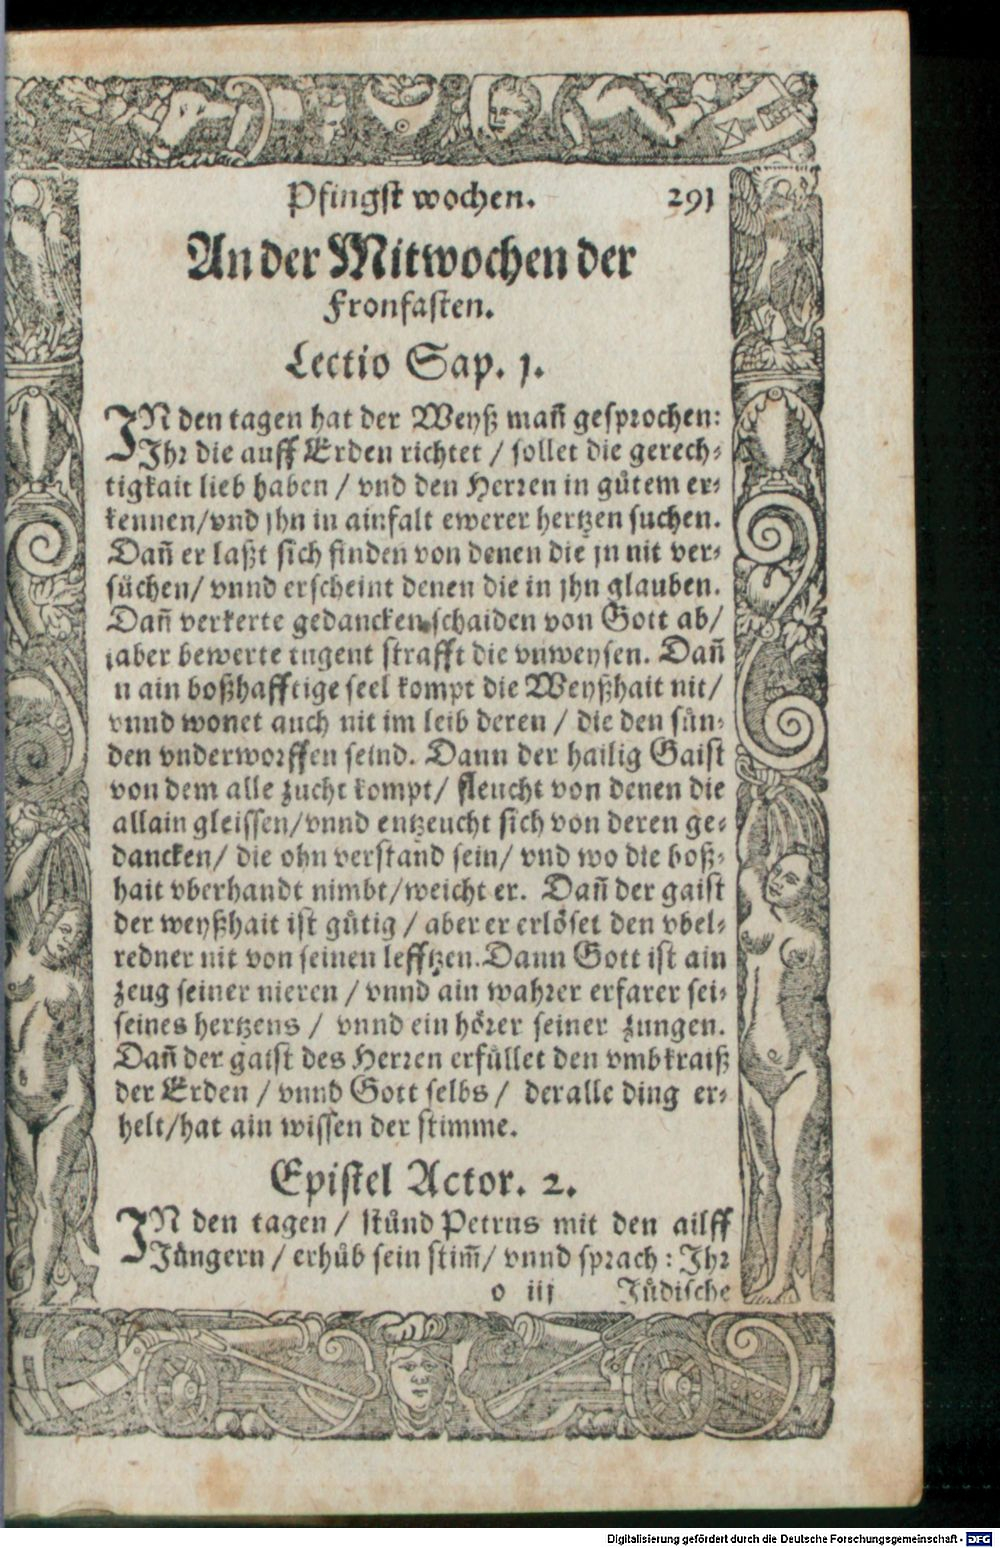 Pfingst wochen. 291
An der Mitwochen der
Fronfasten.
Lectio Sap. j.
IN den tagen hat der Weyß mañ gesprochen:
Jhr die auff Erden richtet / sollet die gerech⸗
tigkait lieb haben / vnd den Herren in gůtem er⸗
kennen/vnd jhn in ainfalt ewerer hertzen suchen.
Dañ er laßt sich finden von denen die jn nit ver⸗
sůchen/ vnnd erscheint denen die in jhn glauben.
Dañ verkerte gedancken schaiden von Gott ab/
aber bewerte tugent strafft die vnweysen. Dañ
n ain boßhafftige seel kompt die Weyßhait nit/
vnnd wonet auch nit im leib deren / die den sün⸗
den vnderworffen seind. Dann der hailig Gaist
von dem alle zucht kompt/ fleucht von denen die
allain gleissen/vnnd entzeucht sich von deren ge⸗
dancken/ die ohn verstand sein/ vnd wo die boß⸗
hait vberhandt nimbt/weicht er. Dañ der gaist
der weyßhait ist gůtig / aber er erlöset den vbel⸗
redner nit von seinen lefftzen. Dann Gott ist ain
zeug seiner nieren / vnnd ain wahrer erfarer sei⸗
seines hertzens / vnnd ein hörer seiner zungen.
Dañ der gaist des Herren erfüllet den vmbkraiß
der Erden / vnnd Gott selbs / der alle ding er⸗
helt/hat ain wissen der stimme.
Epistel Actor. 2.
IN den tagen / stůnd Petrus mit den ailff
Jüngern / erhůb sein stim̃/ vnnd sprach : Jhr
o iij Jüdische
Digitalisierung gefördert durch die Deutsche Forschungsgemeinschaft - DFG